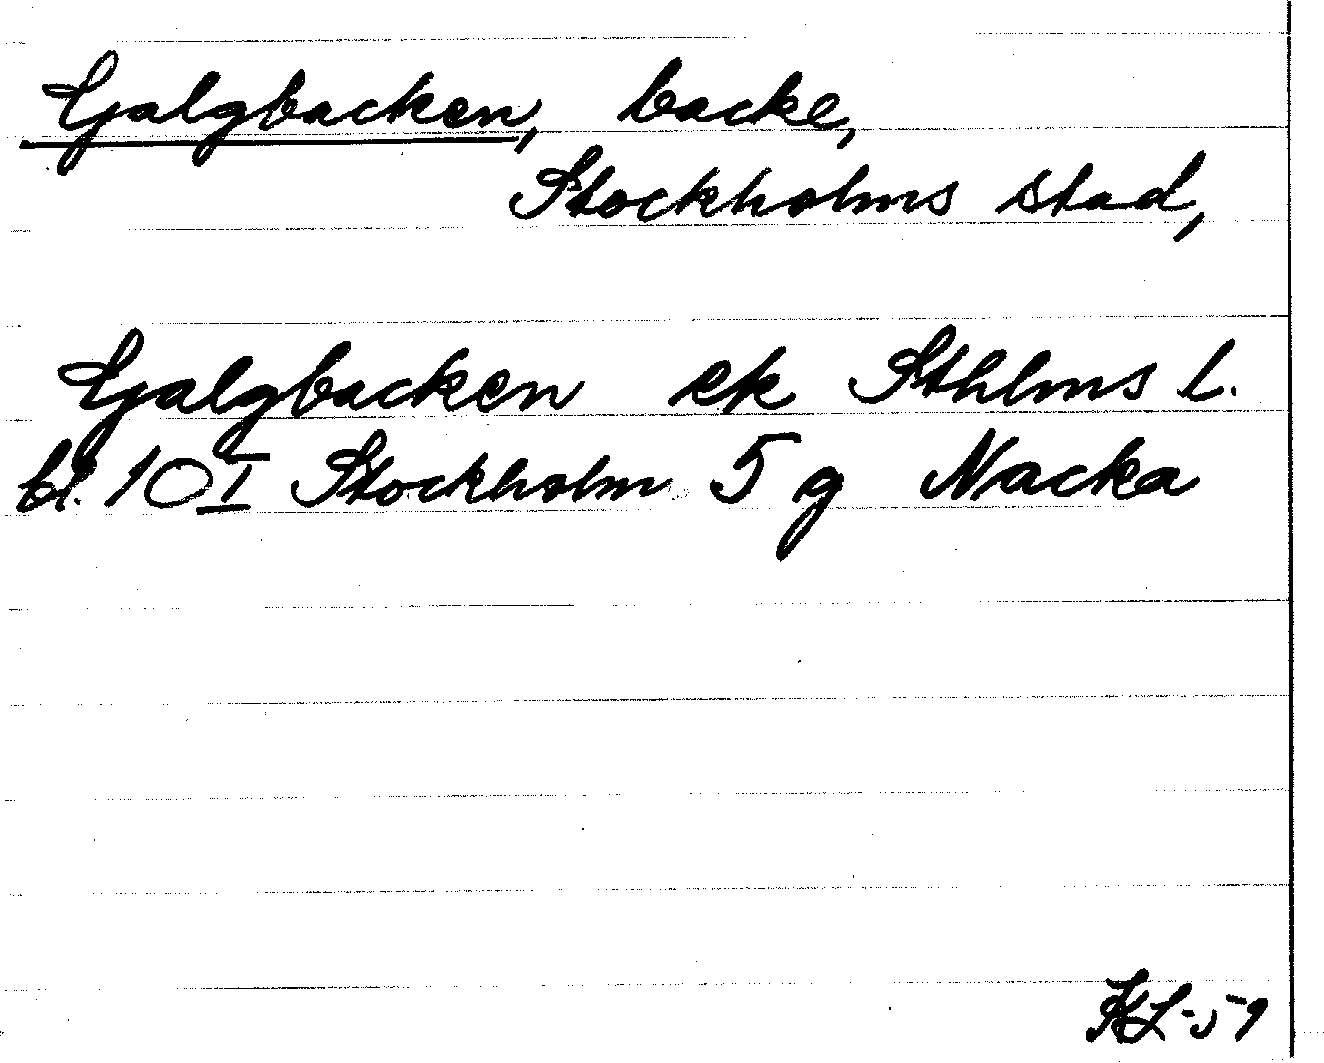 Galgbacken, backe,
Stockholms stad,
Galgbacken ek Sthlms l.
bl. 10 I Stockholm 5 g Nacka
KL-59